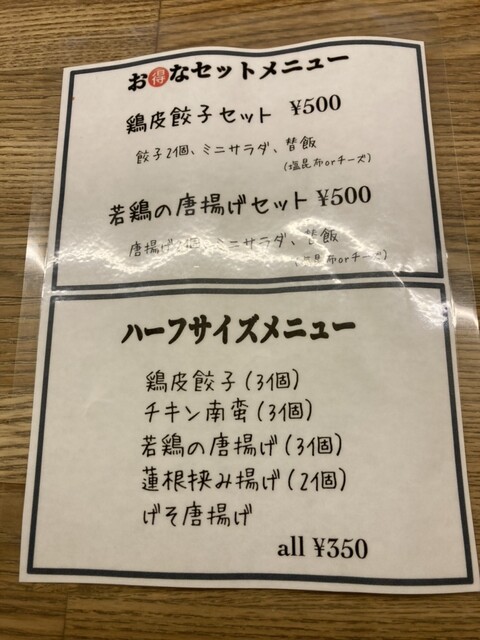 お得なセットメニュー
鶏皮餃子セット ¥500
餃子2個、ミニサラダ、替飯
(塩昆布orチーズ)
若鶏の唐揚げセット ¥500
唐揚げ 個、ミニサラダ、替飯
(塩昆布orチーズ)
ハーフサイズメニュー
鶏皮餃子(3個)
チキン南蛮(3個)
若鶏の唐揚げ(3個)
蓮根挟み揚げ(2個)
げそ唐揚げ
all ¥350